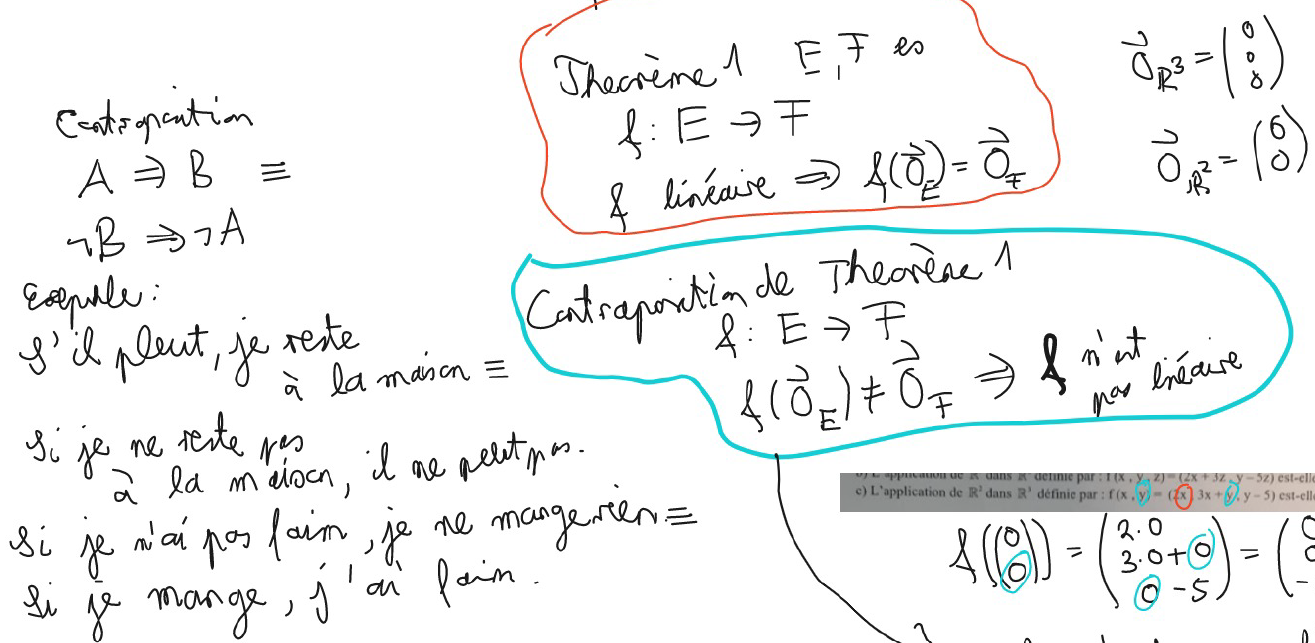 Contraposition
A ⇒ B ≡
¬B ⇒ ¬A
Exemple:
S'il pleut, je reste
à la maison ≡
Si je ne reste pas
à la maison, il ne pleut pas.
Si je n'ai pas faim, je ne mange rien ≡
Si je mange, j'ai faim.
Theorème 1 E, F ev
f: E → F
f linéaire ⇒ f(0⃗_E) = 0⃗_F
0⃗_ℝ³ = (0
0
0)
0⃗_ℝ² = (0
0)
Contraposition de Theorème 1
f: E → F
f(0⃗_E) ≠ 0⃗_F ⇒ f n'est
pas linéaire
définie par : f(x, y, z) = (2x + 3z, y – 5z) est-elle
c) L'application de ℝ² dans ℝ³ définie par : f(x, y) = (2x, 3x + y, y – 5) est-elle
f((0
0)) = (2.0
3.0+0
0-5) = (0
0
-